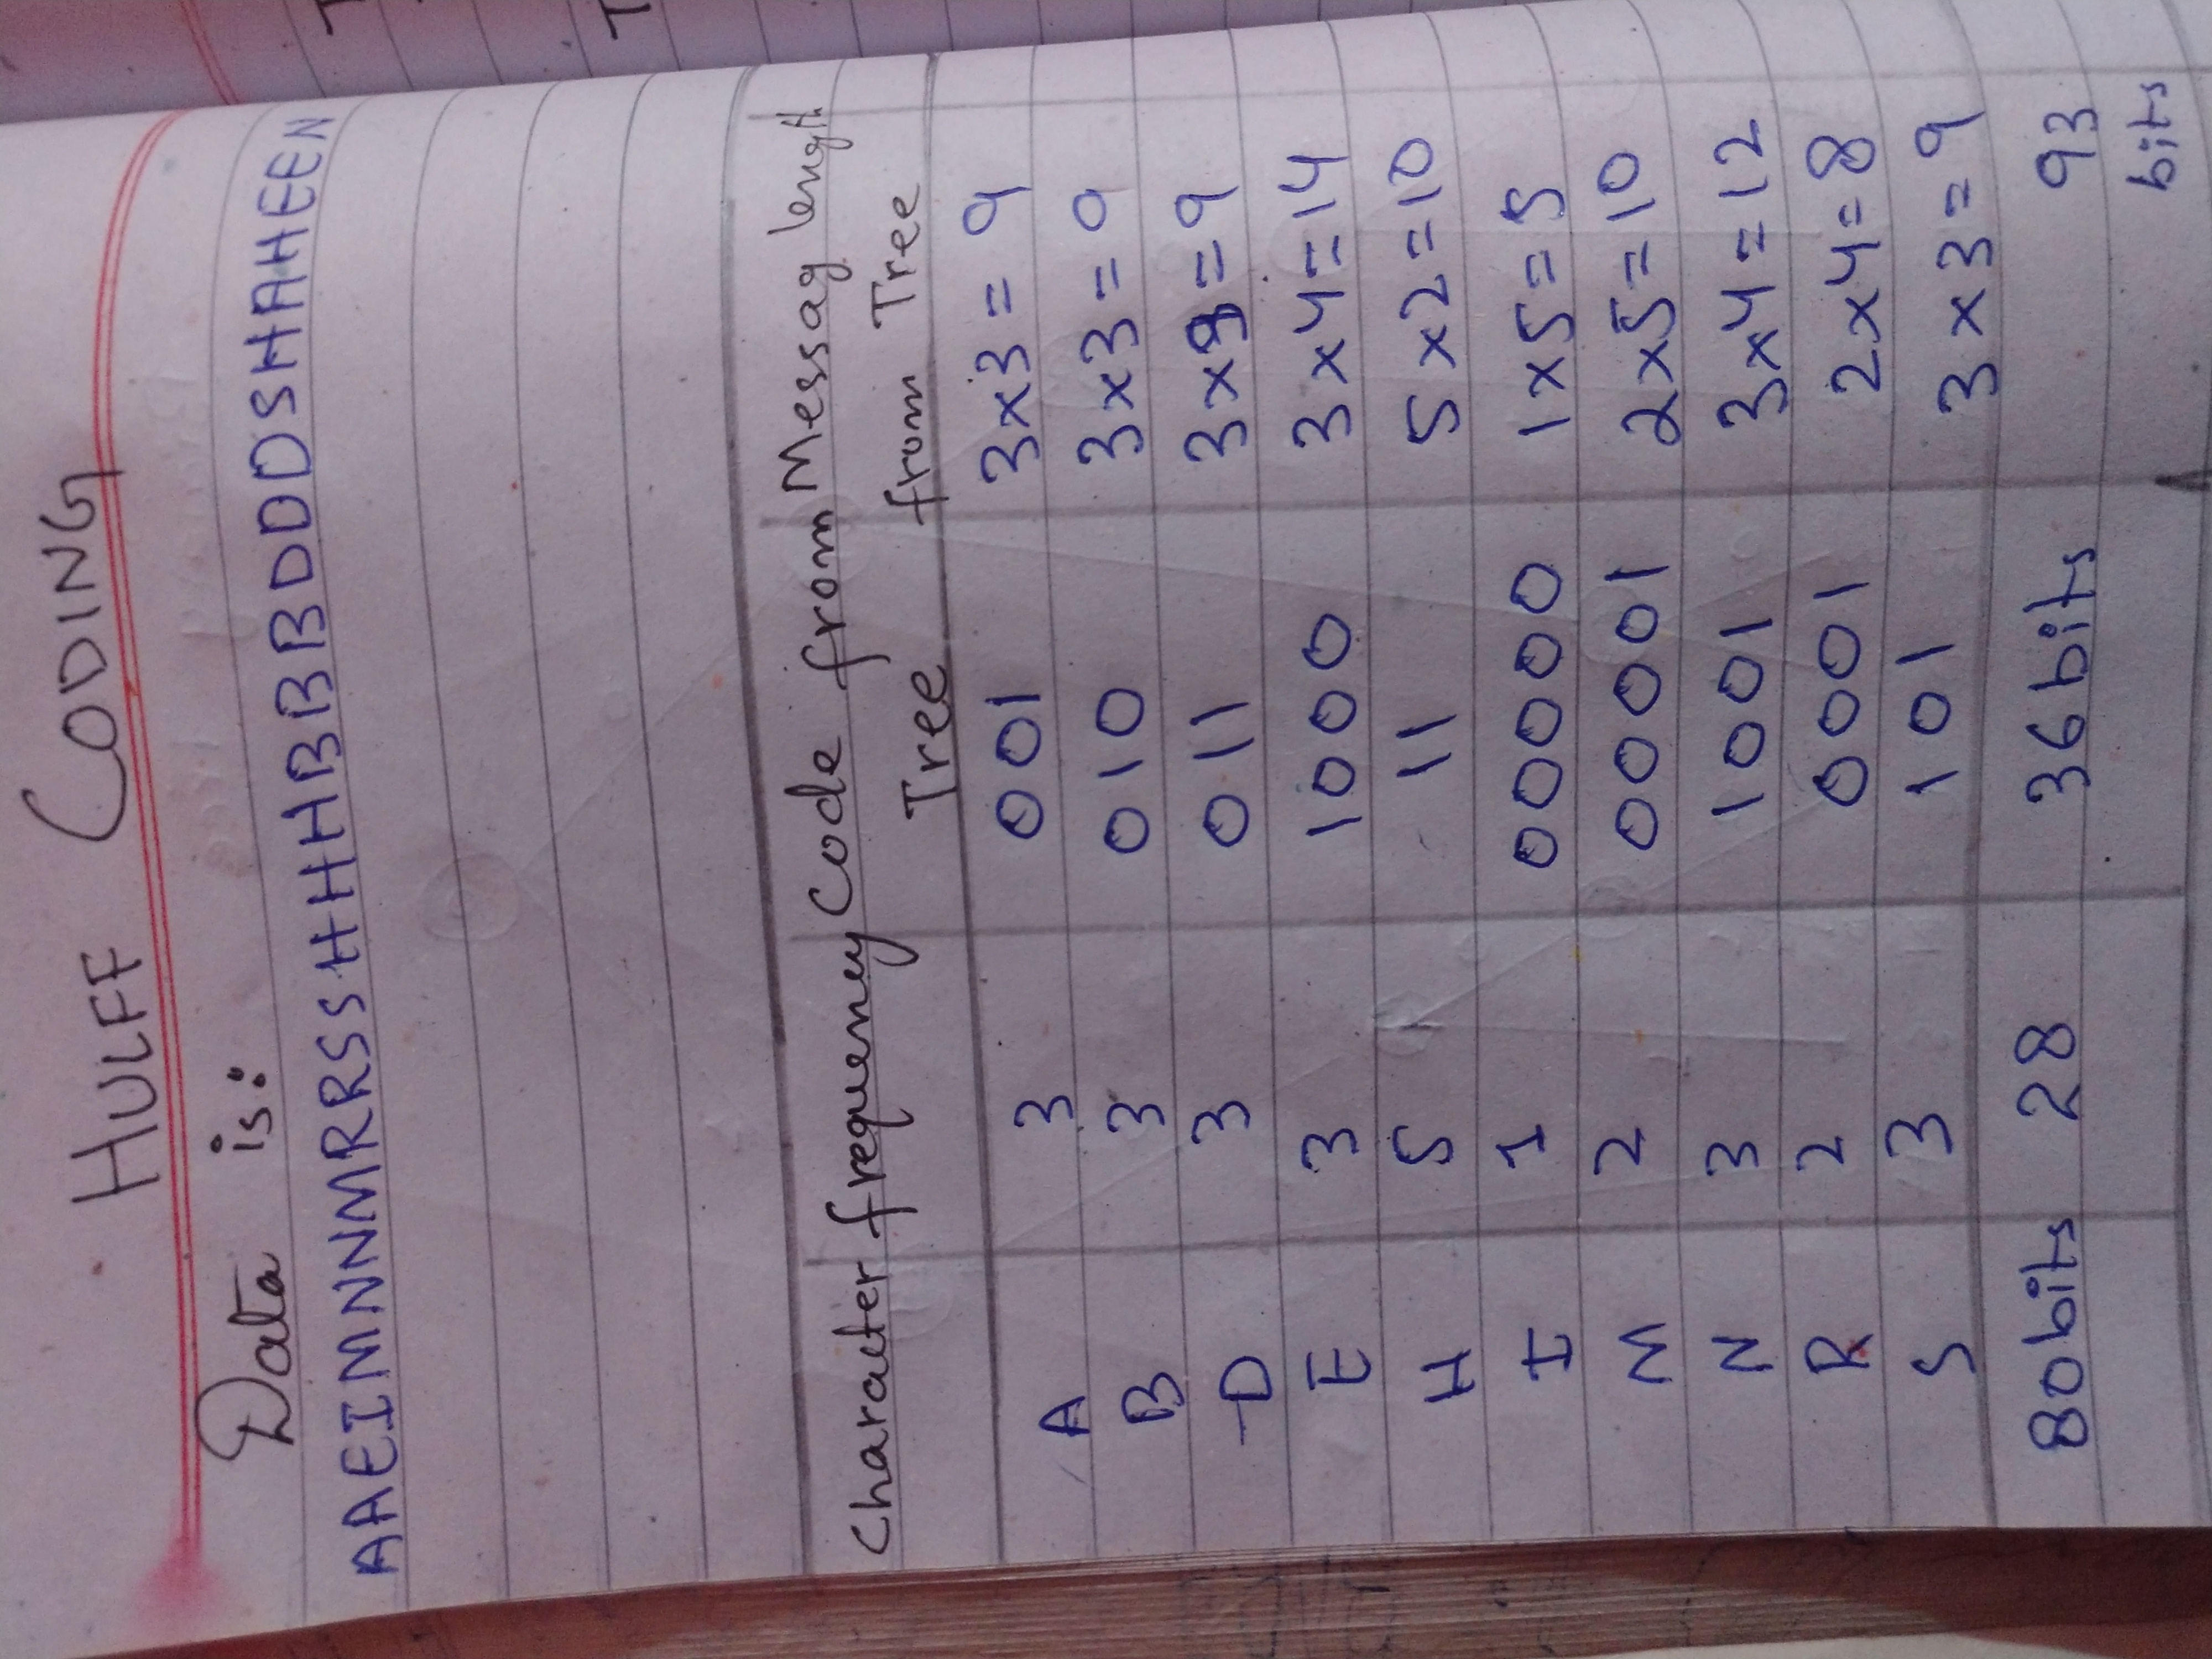 HULFF CODING
Data is:
AAEIMNNMRRSSHHHBBBDDDSHAHEEN
Charater frequency Code from Tree Messag length from Tree
A 3 001 3x3=9
B 3 010 3x3=9
D 3 011 3x3=9
E 3 1000 3x4=14
H 5 11 5x2=10
I 1 00000 1x5=5
M 2 00001 2x5=10
N 3 1001 3x4=12
R 2 0001 2x4=8
S 3 101 3x3=9
80bits 28 36bits 93 bits